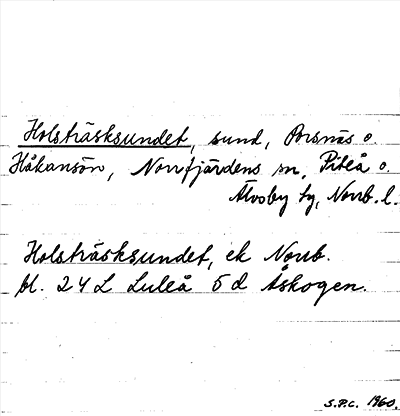 Holsträsksundet, sund, Porsnäs o.
Håkansön, Norrfjärdens sn, Piteå o.
Älvsby tg, Norrb. l.
Holsträsksundet, ek Norrb.
bl. 24 L Luleå 5 d Åskogen.
S.P.C. 1960.